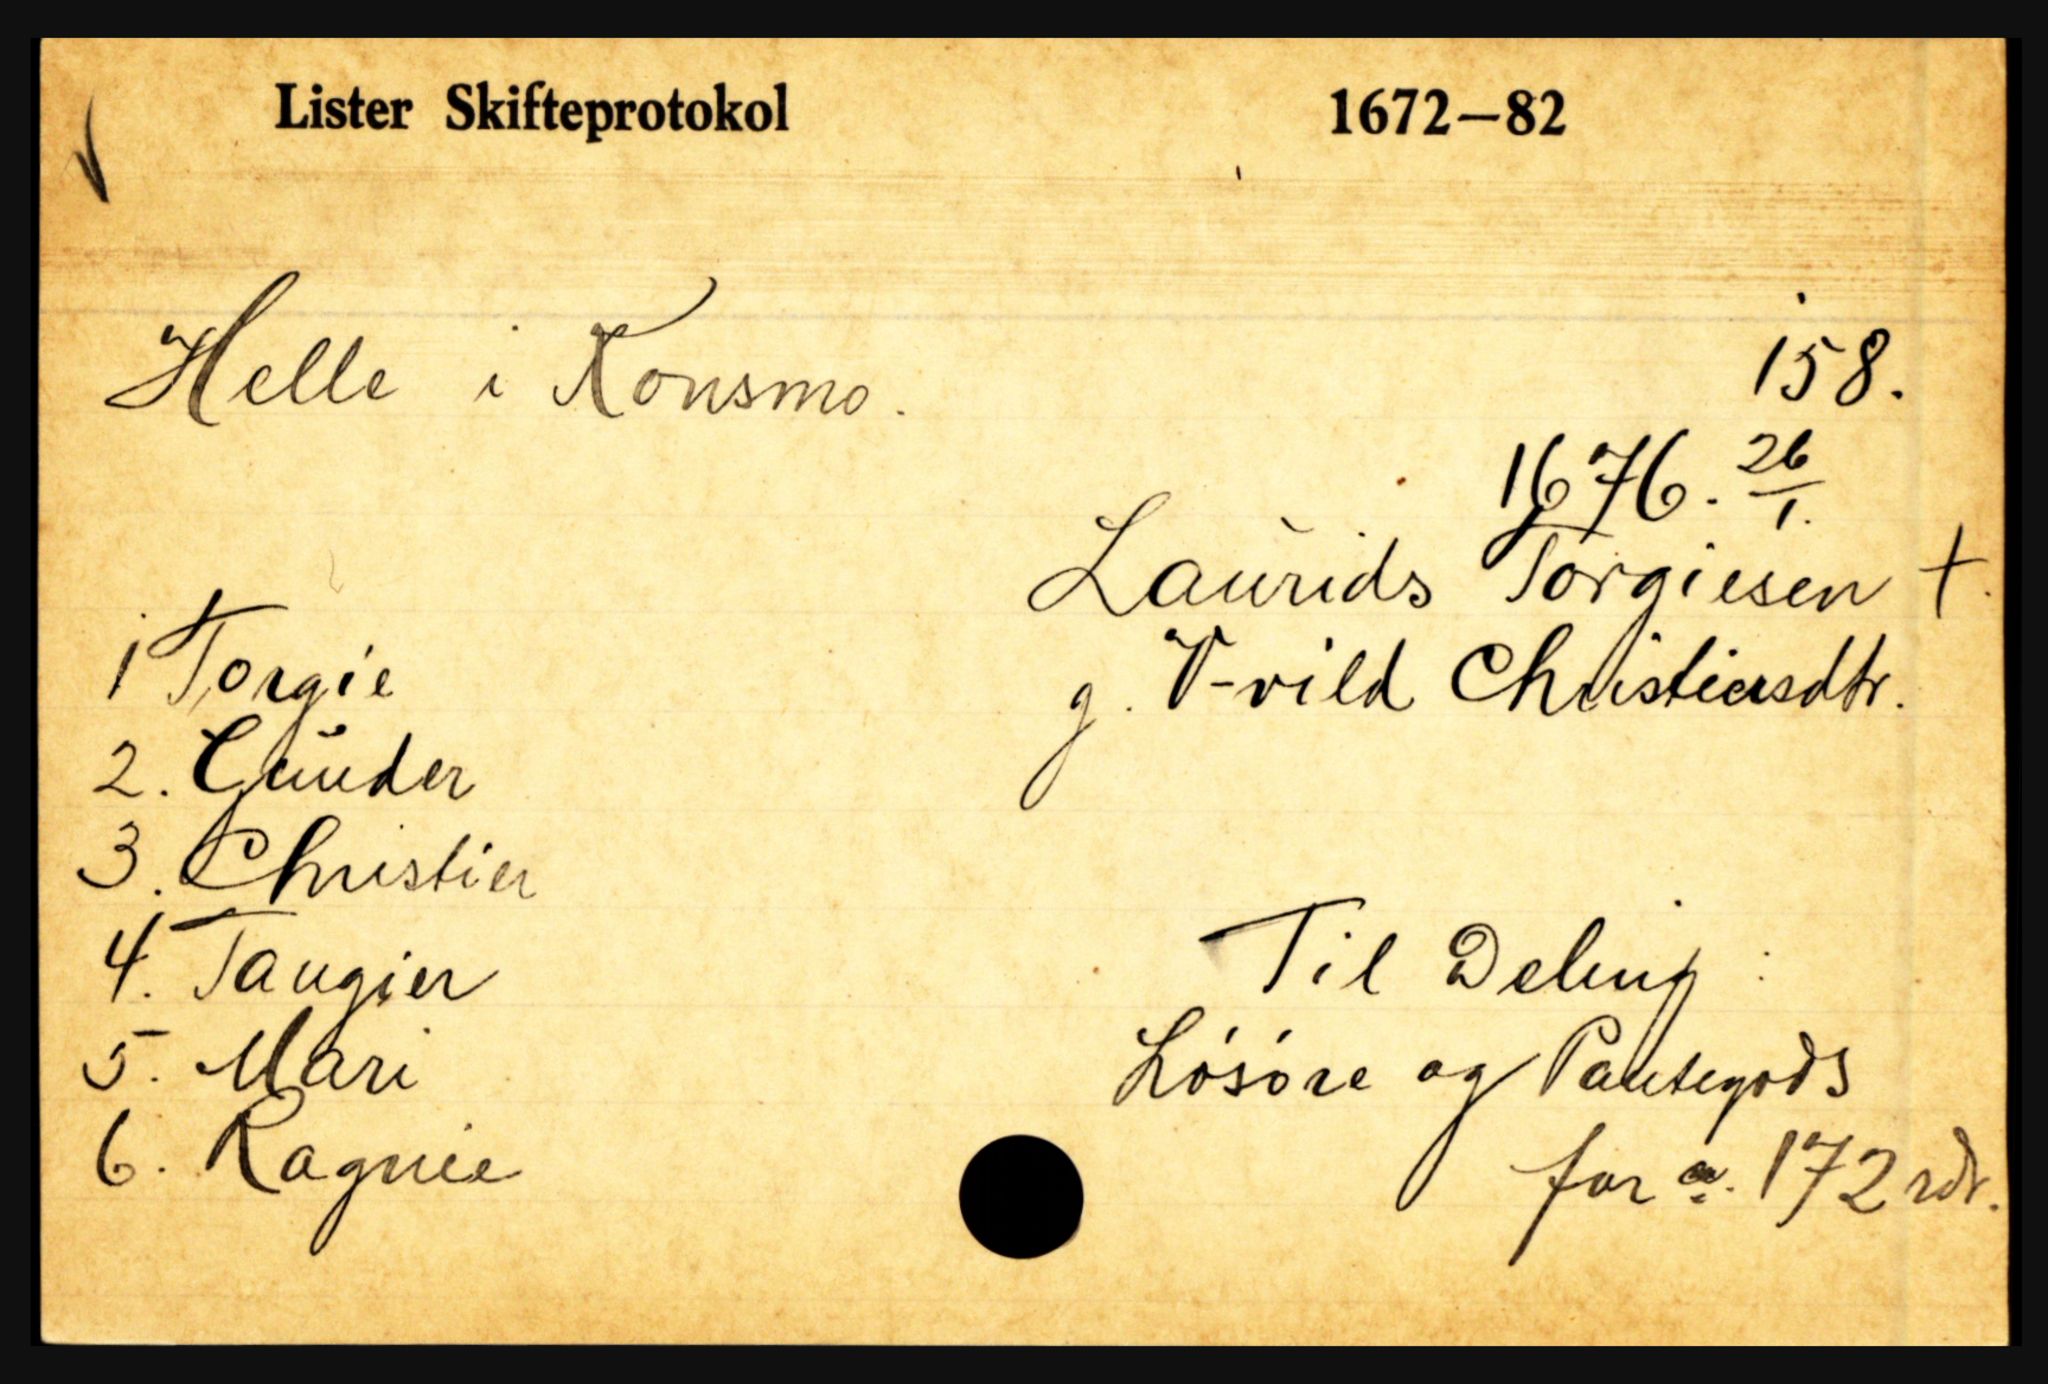 Lister Skifteprotokol 1672–82
Helle i Konsmo.
158.
1676. 26/1.
Laurids Torgiesen +.
g. V-vild Christiersdtr.
1 Torgie
2. Gunder
3. Christier
4. Taugier
5. Mari
6. Ragnie
Til Deling:
Lósóre og Pantegods
for a. 172 rdr.